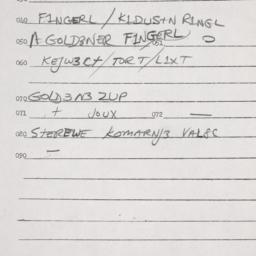 040 FINGERL / KIDUSHN RINGL
050 A GOLD3NER FINGERL 051 O
060 KEJW3CT/TORT/LIXT
070 GOLD3N3 ZUP
071 + JOUX 072 —
080 STEREWE KOMARN/3 VALSC
090 —